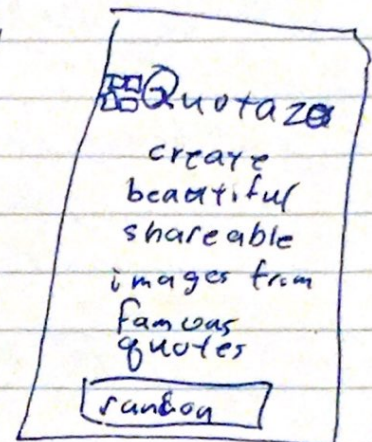 Quotaza
create
beautiful
shareable
images from
famous
quotes
random